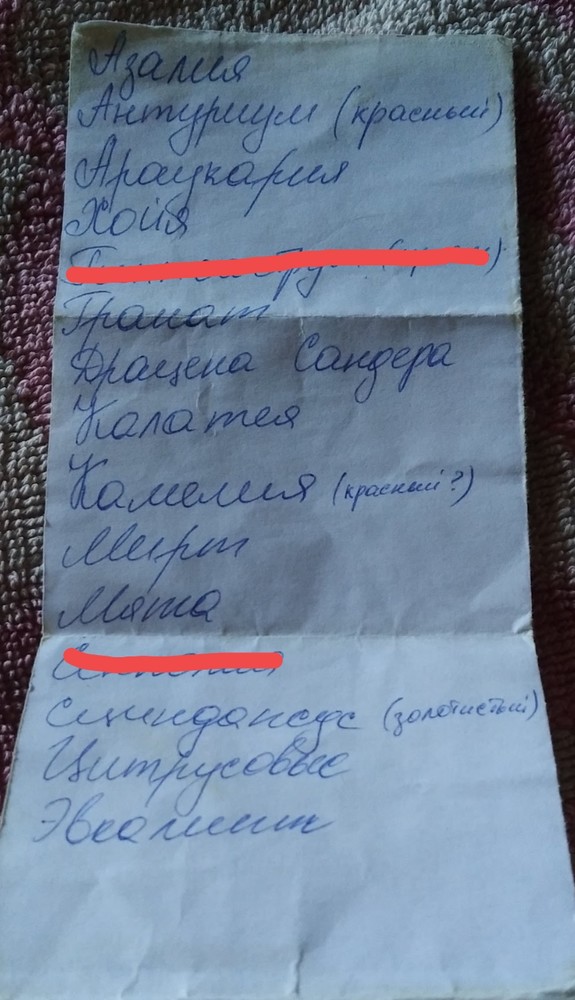 Азалия
Антуриум (красный)
Араукария
Хойя
Гранат
Драцена Сандера
Калатея
Камелия (красный?)
Мирт
Мята
Сциндапсус (золотистый)
Цитрусовые
Эвкалипт